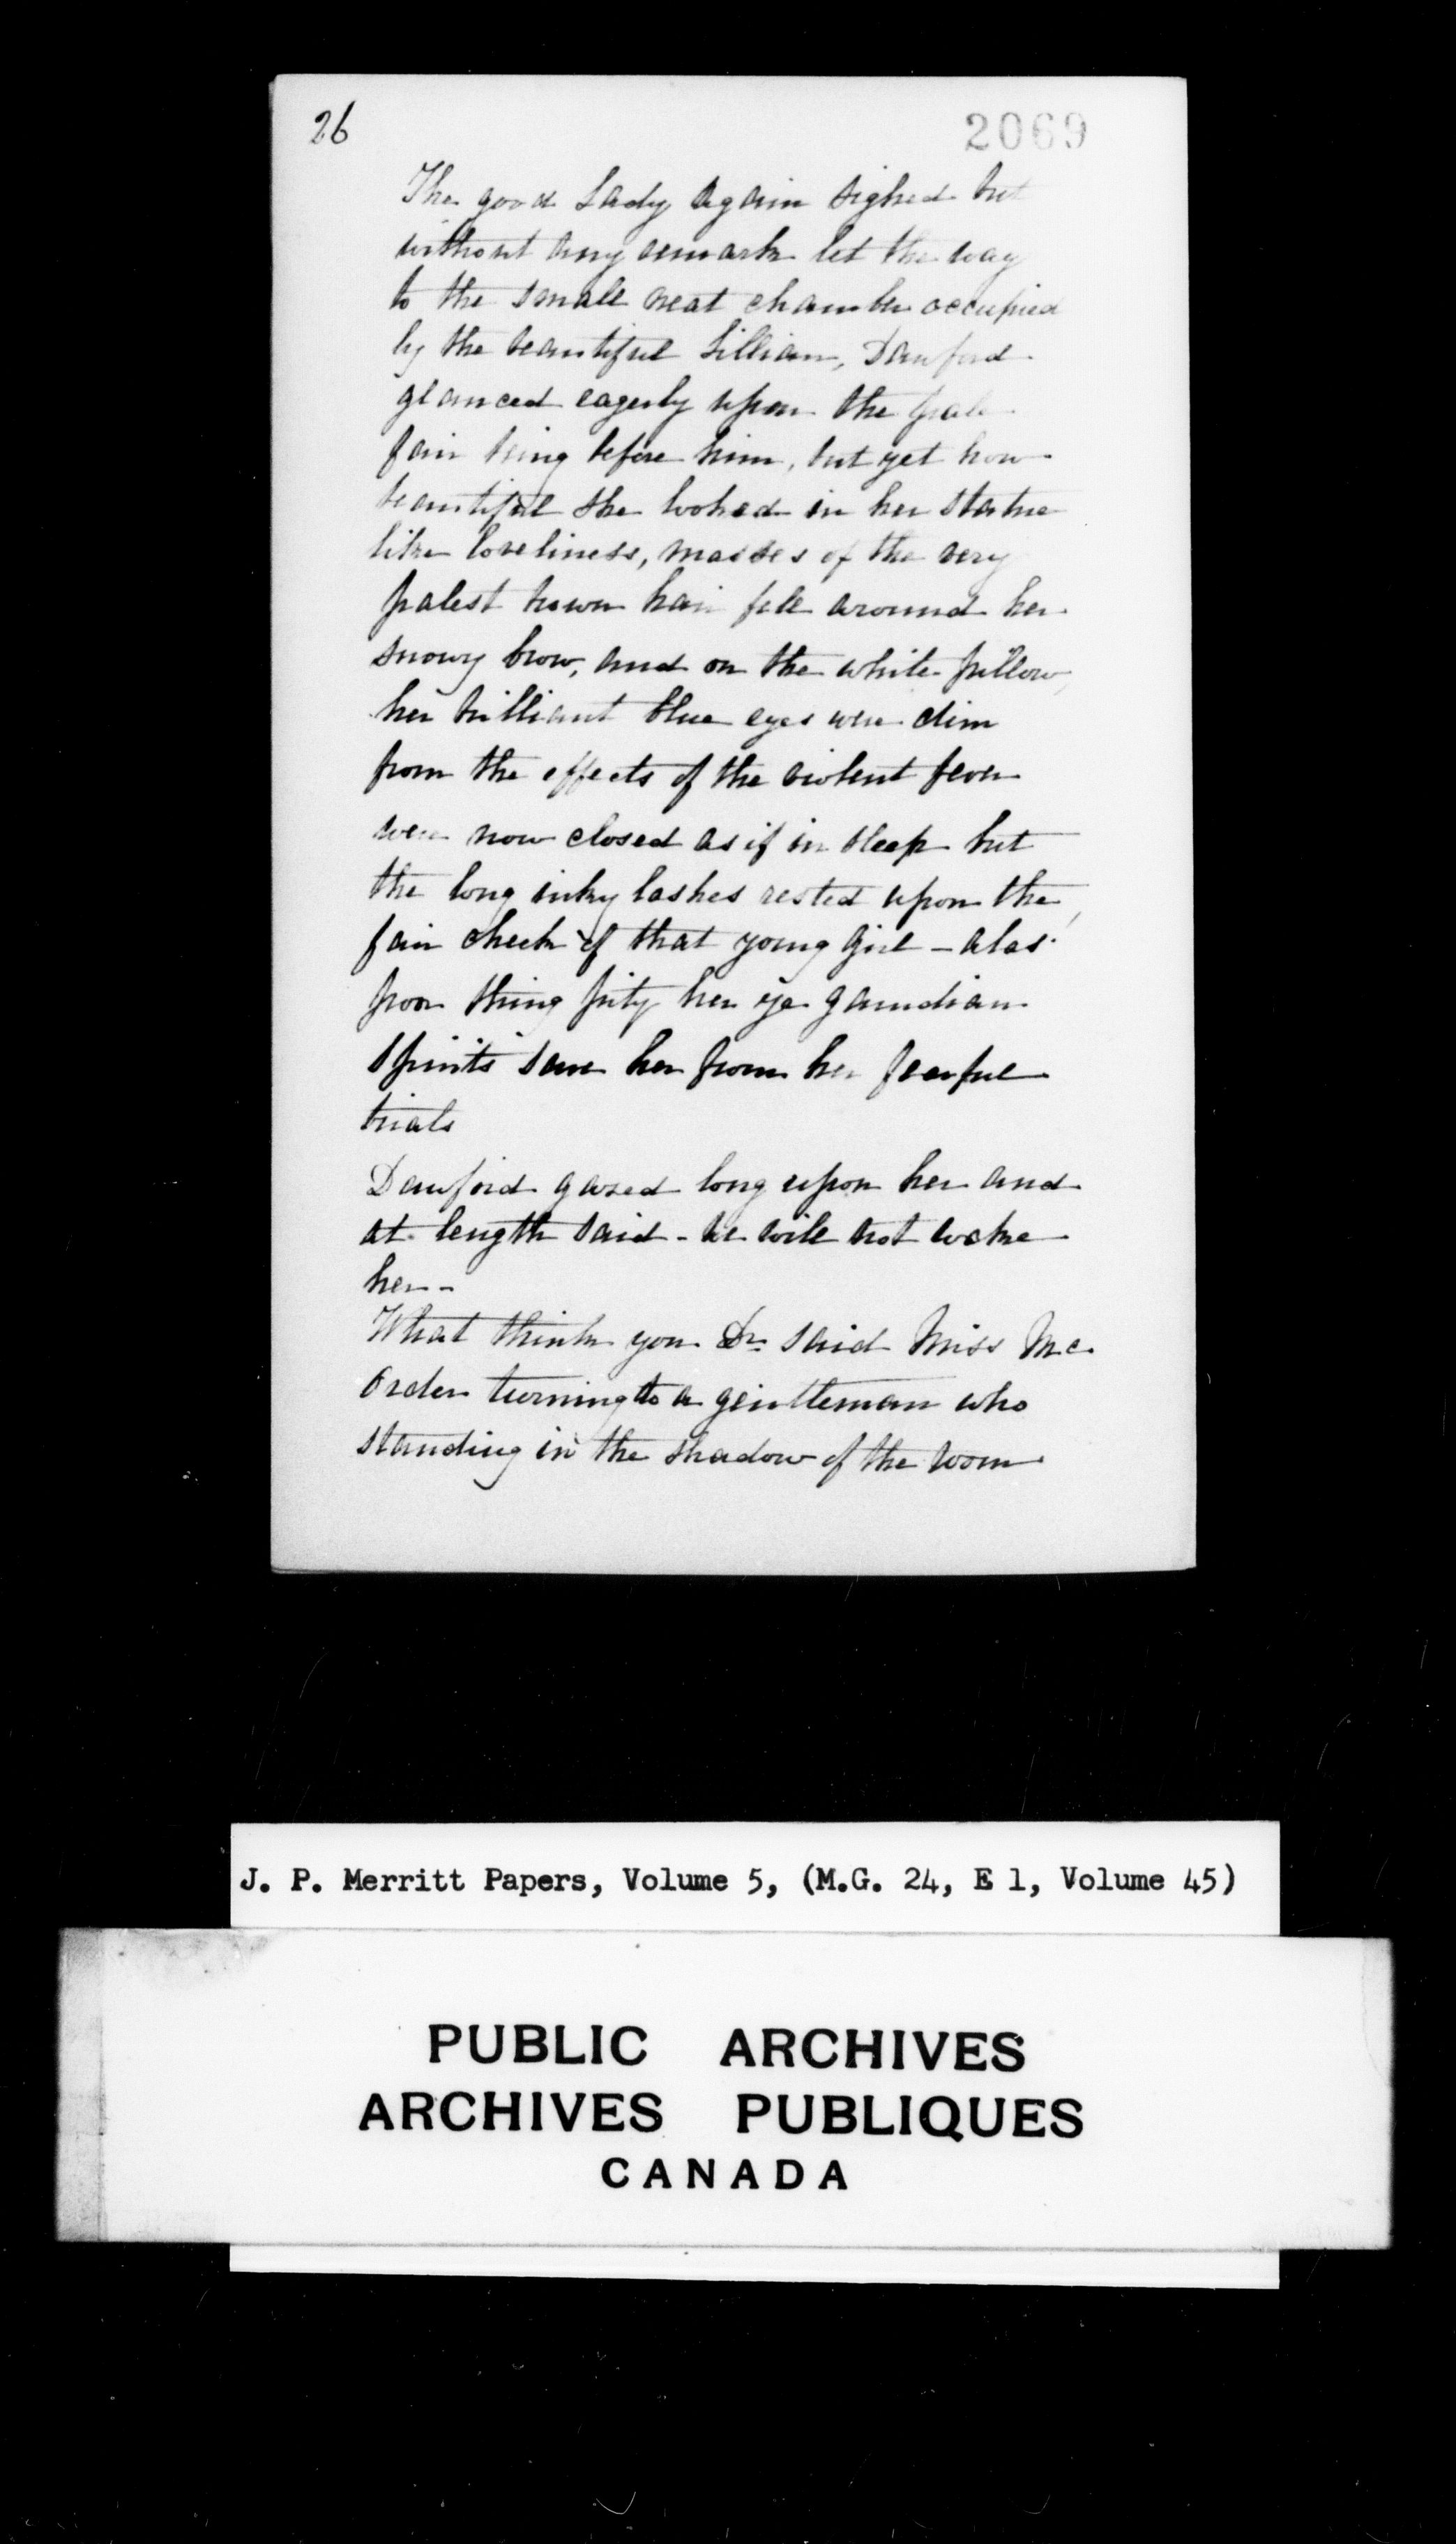 26
2069
The good Lady again sighed but
without any remark let the way
to the small neat chamber occupied
by the beautiful Lillian, Danford
glanced eagerly upon the pale
fair being before him, but yet how
beautiful she looked in her statue
like loveliness, masses of the very
palest brown hair fell around her
snowy brow, and on the white pillow,
her brilliant blue eyes were dim
from the effects of the violent fever
were now closed as if in sleep but
the long inky lashes rested upon the
fair cheek of that young girl - alas!
poor thing pity her ye gaurdian
spirits save her from her fearful
trials
Danford gazed long upon her and
at length said - we will not wake
her -
What think you Dr. said Miss Mc.
Order turning to a gentleman who
standing in the shadow of the room
J. P. Merritt Papers, Volume 5, (M.G. 24, E 1, Volume 45)
PUBLIC ARCHIVES
ARCHIVES PUBLIQUES
CANADA